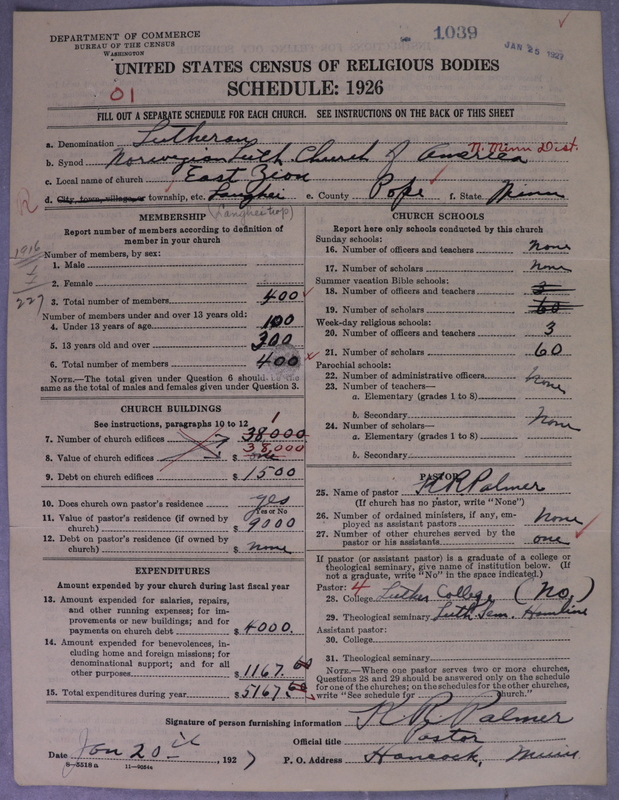 DEPARTMENT OF COMMERCE
BUREAU OF THE CENSUS
WASHINGTON
1039
JAN 25 1927
UNITED STATES CENSUS OF RELIGIOUS BODIES
SCHEDULE: 1926
01
FILL OUT A SEPARATE SCHEDULE FOR EACH CHURCH. SEE INSTRUCTIONS ON THE BACK OF THIS SHEET
a. Denomination Lutheran
b. Synod Norwegian Luth. Church of America N. Minn Dist.
c. Local name of church East Zion
d. City, town, village, or township, etc. Langhei e. County Pope f. State Minn
R
1916
227
MEMBERSHIP
Report number of members according to definition of
member in your church
Number of members, by sex:
1. Male
2. Female
3. Total number of members 400
Number of members under and over 13 years old:
4. Under 13 years of age 100
5. 13 years old and over 300
6. Total number of members 400
NOTE.—The total given under Question 6 should be the
same as the total of males and females given under Question 3.
CHURCH BUILDINGS
See instructions, paragraphs 10 to 12
1
7. Number of church edifices 38,000
38,000
8. Value of church edifices $
9. Debt on church edifices $ 1500
10. Does church own pastor's residence yes
Yes or No
11. Value of pastor's residence (if owned by
church) $ 9000
12. Debt on pastor's residence (if owned by
church) $ none
EXPENDITURES
Amount expended by your church during last fiscal year
13. Amount expended for salaries, repairs,
and other running expenses; for im-
provements or new buildings; and for
payments on church debt $ 4000.
14. Amount expended for benevolences, in-
cluding home and foreign missions; for
denominational support; and for all
other purposes $ 1167.60
15. Total expenditures during year $ 5167.60
CHURCH SCHOOLS
Report here only schools conducted by this church
Sunday schools:
16. Number of officers and teachers None
17. Number of scholars None
Summer vacation Bible schools:
18. Number of officers and teachers 3
19. Number of scholars 60
Week-day religious schools:
20. Number of officers and teachers 3
21. Number of scholars 60
Parochial schools:
22. Number of administrative officers None
23. Number of teachers—
a. Elementary (grades 1 to 8)
b. Secondary None
24. Number of scholars—
a. Elementary (grades 1 to 8)
b. Secondary
PASTOR
25. Name of pastor K R Palmer
(If church has no pastor, write "None")
26. Number of ordained ministers, if any, em-
ployed as assistant pastors None
27. Number of other churches served by the
pastor or his assistants one
If pastor (or assistant pastor) is a graduate of a college or
theological seminary, give name of institution below. (If
not a graduate, write "No" in the space indicated.)
Pastor: 4
28. College Luther College (No)
29. Theological seminary Luth. Sem. Hamline
Assistant pastor:
30. College
31. Theological seminary
NOTE.—Where one pastor serves two or more churches,
Questions 28 and 29 should be answered only on the schedule
for one of the churches; on the schedules for the other churches,
write "See schedule for church."
Signature of person furnishing information K R Palmer
Official title Pastor
Date Jan 20th, 1927 P. O. Address Hancock, Minn.
8-5518a 11-9054a